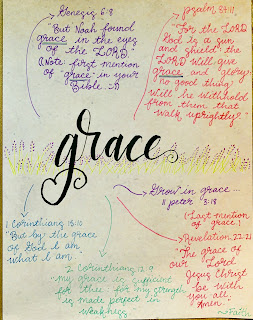 Genesis 6:8
"But Noah found
grace in the eyes
of the LORD."
(Note: first mention
of "grace" in your
Bible. :D
psalm 84:11
"For the LORD
God is a sun
and shield: the
LORD will give
grace and glory:
no good thing
will he withhold
from them that
walk uprightly."
grace
1 Corinthians 15:10
"But by the grace
of God I am
what I am
Grow in grace...
II peter 3:18
2 Corinthians 12:9
"my grace is sufficient
for thee: for my strength
is made perfect in
weakness
(Last mention of grace!)
Revelation 22:21
"The grace of
our Lord
Jesus Christ
be with
you all,
Amen.
~Faith